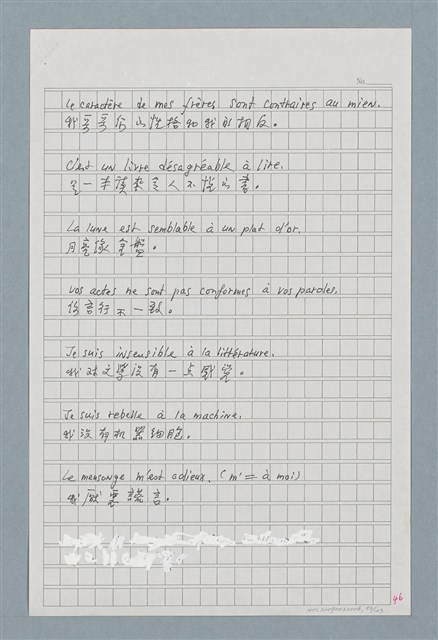 No.
Le caractère de mes frères sont contraires au mien.
我哥哥们的性格和我的相反。
C'est un livre désagréable à lire.
是一本读来令人不悦的書。
La lune est semblable à un plat d'or.
月亮像金盤。
Vos actes ne sont pas conformes à vos paroles.
你言行不一致。
Je suis insensible à la littérature.
我对文學没有一点感覚。
Je suis rebelle à la machine.
我没有机器细胞。
Le mensonge m'est odieux. (m' = à moi)
我厭惡謊言。
46